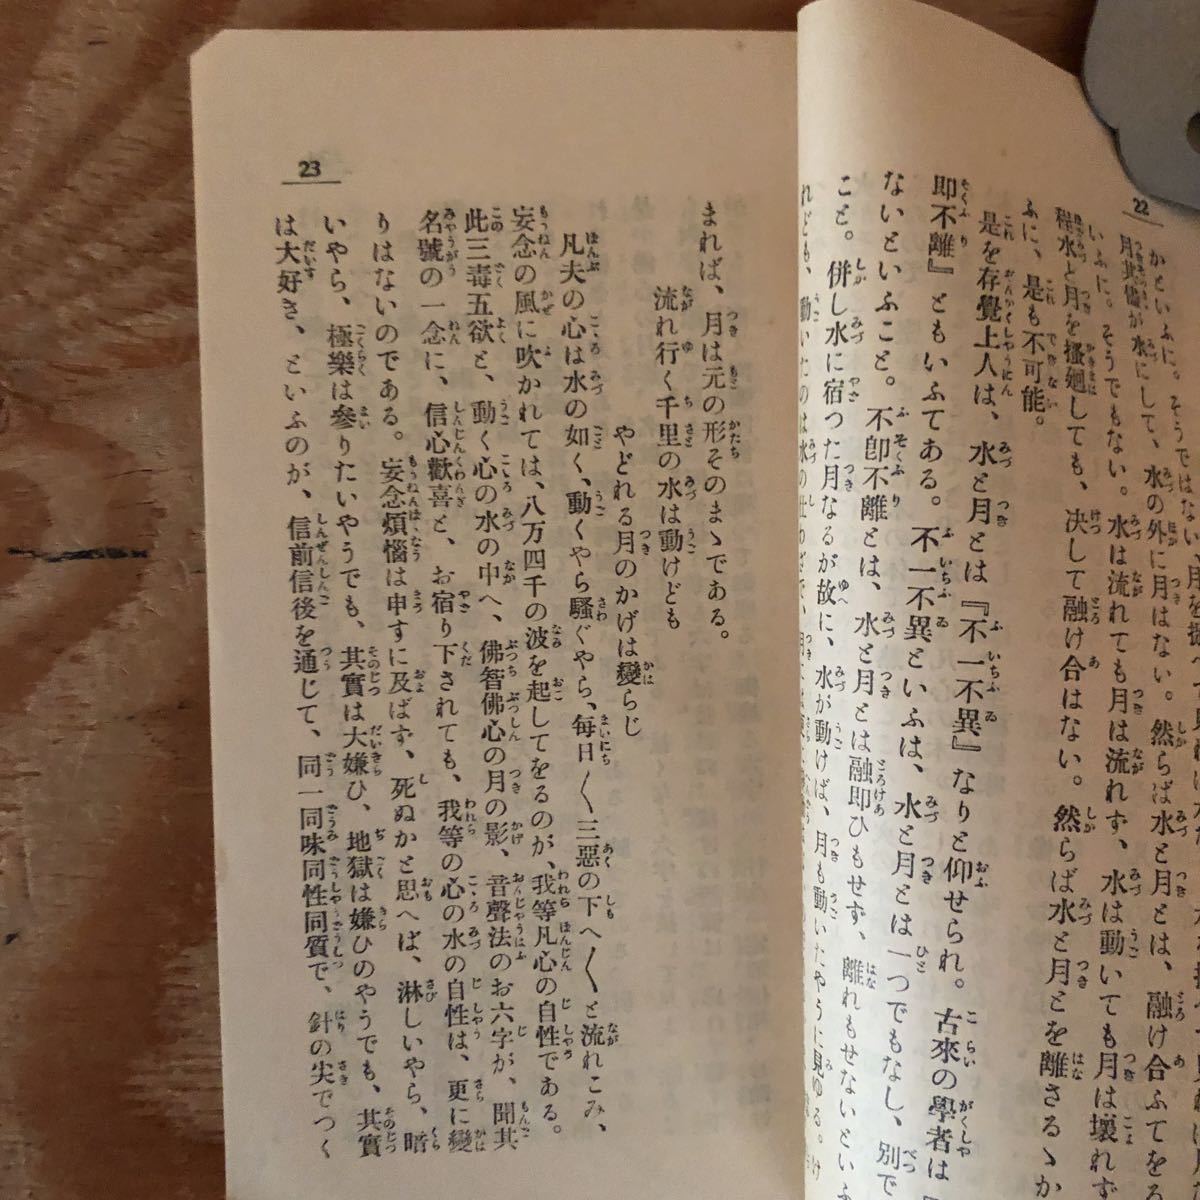 22
かといふに。そうではない
月其儘が水にして、水の外に月はない。然らば水と月とは、融け合ふてをる
いふに。そうでもない。水は流れても月は流れず、水は動いても月は壊れず
程水と月を掻廻しても、决して融け合はない。然らば水と月とを離さるゝか
ふに、是も不可能。
是を存覺上人は、水と月とは『不一不異』なりと仰せられ。古來の學者は『
即不離』ともいふてある。不一不異といふは、水と月とは一つでもなし、別で
ないといふこと。不卽不離とは、水と月とは融即ひもせず、離れもせないといふ
こと。併し水に宿つた月なるが故に、水が動けば、月も動いたやうに見ゆる。け
れども、動いたのは水の
まれば、月は元の形そのまゝである。
流れ行く千里の水は動けども
やどれる月のかげは變らじ
凡夫の心は水の如く、動くやら騷ぐやら、每日〱三惡の下へ〱と流れこみ、
妄念の風に吹かれては、八万四千の波を起してをるのが、我等凡心の自性である。
此三毒五欲と、動く心の水の中へ、佛智佛心の月の影、音聲法のお六字が、聞其
名號の一念に、信心歡喜と、お宿り下されても、我等の心の水の自性は、更に變
りはないのである。妄念煩惱は申すに及ばず、死ぬかと思へば、淋しいやら、暗
いやら、極樂は參りたいやうでも、其實は大嫌ひ、地獄は嫌ひのやうでも、其實
は大好き、といふのが、信前信後を通じて、同一同味同性同質で、針の尖でつく
23